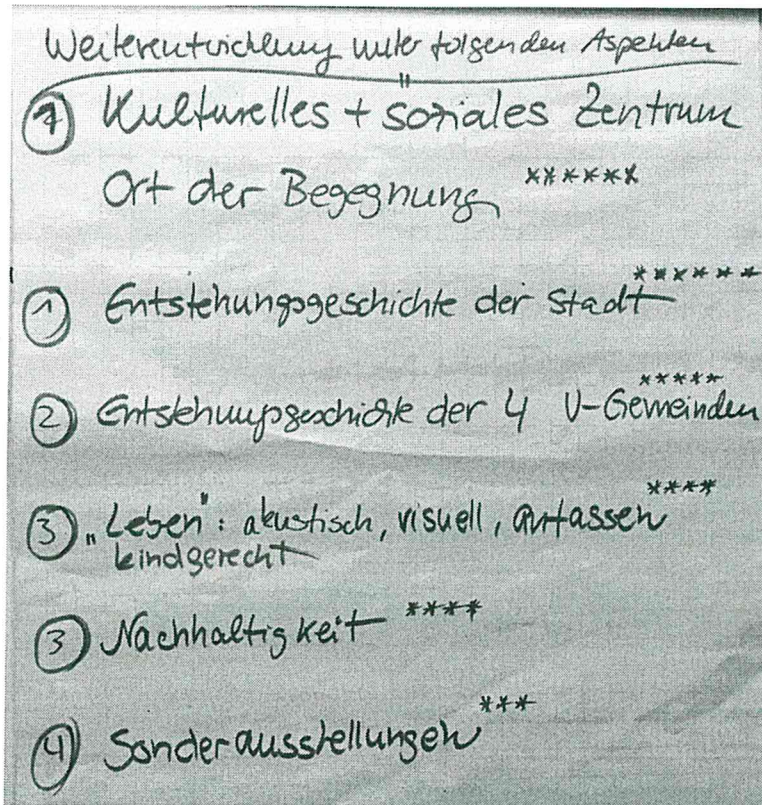 Weiterentwicklung unter folgenden Aspekten
① Kulturelles + soziales Zentrum
Ort der Begegnung ******
① Entstehungsgeschichte der Stadt ******
② Entstehungsgeschichte der 4 V-Gemeinden *****
③ „Leben": akustisch, visuell, anfassen ****
kindgerecht
③ Nachhaltigkeit ****
④ Sonderausstellungen ***